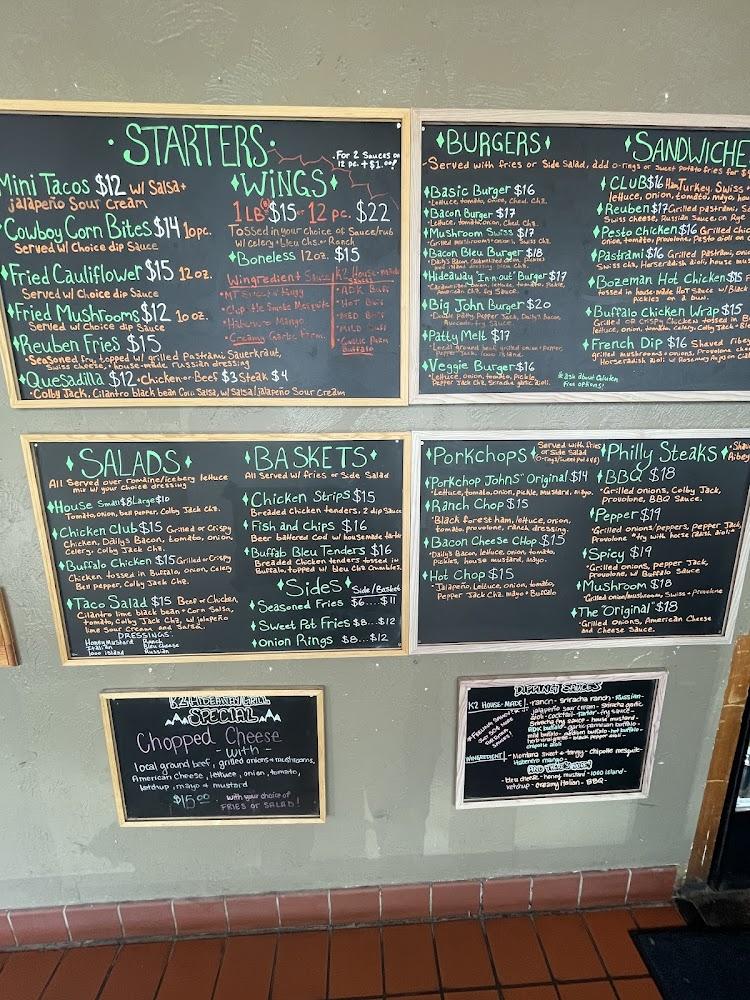 · STARTERS ·
Mini Tacos $12 w/ Salsa+
jalapeño Sour Cream
Cowboy Corn Bites $14 10pc.
Served w/ Choice dip Sauce
Fried Cauliflower $15 12 oz.
Served w/ Choice dip Sauce
Fried Mushrooms $12 10 oz.
Served w/ Choice dip Sauce
Reuben Fries $15
Seasoned fry, topped w/ grilled Pastrami Sauerkraut,
Swiss cheese, + house-made russian dressing
Quesadilla $12 · Chicken or Beef $3 Steak $4
Colby Jack, Cilantro black bean Corn Salsa, w/ Salsa/jalapeño Sour Cream
For 2 Sauces on
12 pc. + $1.00!
WiNGS
1 LB $15 or 12 pc. $22
Tossed in your choice of Sauce/rub
w/ Celery + Bleu Chs. or Ranch
Boneless 12oz. $15
Wingredient Sauces
Chipotle Smoke Mesquite
Habanero Mango
Creamy Garlic Parm
K2 House-made
Sauces
Hot Buff
Med Buff
Mild Buff
Garlic Parm
Buffalo
BURGERS
Served with fries or Side Salad, add o-rings or sweet potato fries for
Basic Burger $16
Lettuce, tomato, onion, Ched. Chz.
Bacon Burger $17
Lettuce, tomato, onion, Ched. Chz.
Mushroom Swiss $17
Grilled mushrooms + onions, Swiss Chz.
Bacon Bleu Burger $18
Hideaway "In-n-out" Burger $17
Caramelized onion, lettuce, tomato, Pickle,
American Chz, fry Sauce.
Big John Burger $20
Double patty, Pepper Jack, Daily's Bacon,
Avocado, fry Sauce
Patty Melt $17
Local ground beef, grilled onion + Pepper,
Pepper Jack, 1000 island.
Veggie Burger $16
Lettuce, onion, tomato, Pickle,
Pepper Jack Chz, Sriracha garlic aioli.
* Ask about Gluten
Free options!
SANDWICHE
CLUB $16 Ham, Turkey, Swiss
lettuce, onion, tomato, mayo
Reuben $17 Grilled pastrami, Sa
Swiss cheese, Russian Sauce, on Rye
Pesto Chicken $16 Grilled Chic
onion, tomato, provolone, Pesto aioli on
Pastrami $16 Grilled Pastrami, onion
Swiss chz, Horseradish aioli, house mus
Bozeman Hot Chicken $15
tossed in house-made Hot Sauce w/ Black
pickles on a bun.
Buffalo Chicken Wrap $15
Grilled or Crispy Chicken tossed in B
lettuce, onion, tomato, Celery, Colby Jack
French Dip $16 Shaved ribey
grilled mushrooms + onions, Provolone ch
Horseradish aioli w/ Rosemary
SALADS
All Served over romaine/iceberg lettuce
mix w/ your choice dressing
House Small $8 Large $10
Tomato, onion, bell pepper, Colby Jack Chz.
Chicken Club $15 Grilled or Crispy
Chicken, Daily's Bacon, tomato, onion,
Celery, Colby Jack Chz.
Buffalo Chicken $15 Grilled or Crispy
Chicken tossed in Buffalo, onion, Celery
Bell pepper, Colby Jack Chz.
Taco Salad $15 Beef or Chicken,
Cilantro lime black bean + Corn Salsa,
tomato, Colby Jack Chz, w/ jalapeño
lime Sour Cream and Salsa.
DRESSINGS:
Honey Mustard Ranch
Italian Bleu Cheese
1000 Island Russian
BASKETS
All Served w/ fries or Side Salad
Chicken Strips $15
Breaded Chicken tenders, 2 dip Sauce
Fish and Chips $16
Beer battered Cod w/ housemade tartar
Buffalo Bleu Tenders $16
Breaded Chicken tenders tossed in
Buffalo, topped w/ bleu Chz Crumbles.
SiDeS Side/Basket
Seasoned Fries $6....$11
Sweet Pot Fries $8...$12
Onion Rings $8...$12
PORKCHOPS
Served with fries
or Side Salad
Porkchop Johns "Original $14
Lettuce, tomato, onion, pickle, mustard, mayo.
Ranch Chop $15
Black forest ham, lettuce, onion,
tomato, provolone, ranch dressing.
Bacon Cheese Chop $15
Daily's Bacon, lettuce, onion, tomato,
pickles, house mustard, Mayo.
Hot Chop $15
Jalapeño, Lettuce, onion, tomato,
Pepper Jack Chz. mayo + Buffalo
Philly Steaks
BBQ $18
Grilled onions, Colby Jack,
Provolone, BBQ Sauce.
Pepper $19
Grilled onions/peppers, pepper Jack,
Provolone
Spicy $19
Grilled onions, Pepper Jack,
provolone, w/ Buffalo Sauce
Mushroom $18
Grilled onion/mushroom, Swiss + Provolone
The "Original" $18
Grilled Onions, American Cheese
and Cheese Sauce.
K2 HIDEAWAY GRILL
SPECIAL
Chopped Cheese
- with -
local ground beef, grilled onions + mushrooms,
American cheese, lettuce, onion, tomato,
ketchup, mayo + mustard
$15.00 with your choice of
FRIES or SALAD!
DIPPING SAUCES
K2 HOUSE-MADE: -ranch - sriracha ranch - Russian-
jalapeño sour cream - Sriracha garlic
aioli - cocktail - tartar - fry sauce -
Sriracha fry sauce - house mustard -
mild buffalo - medium buffalo - hot buffalo -
horseradish aioli - black pepper aioli -
chipotle aioli
WINGREDIENT: - Montana sweet + tangy - chipotle mesquite -
Habanero mango-
-bleu cheese - honey mustard - 1000 island -
ketchup - creamy Italian - BBQ -